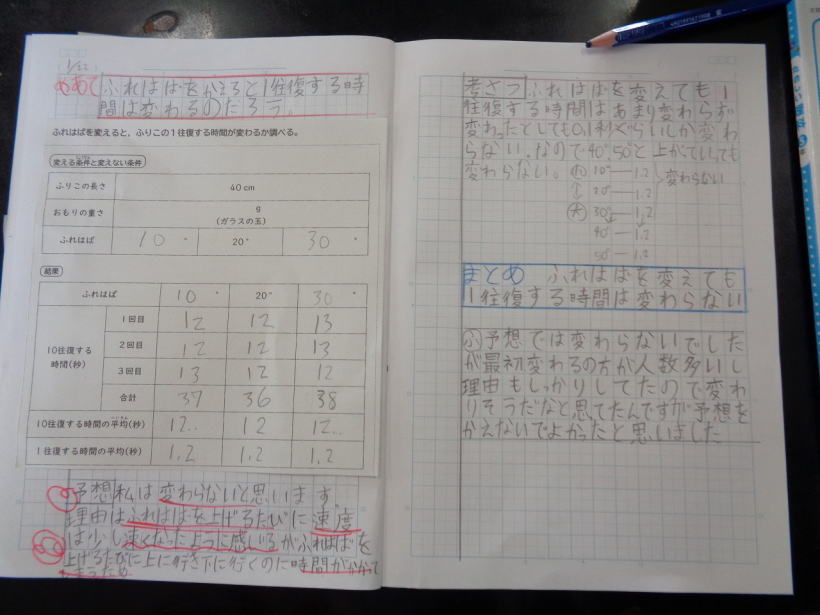 1/22
めあて ふれはばをかえると1往復する時
間は変わるのだろう。
ふれはばを変えると，ふりこの１往復する時間が変わるか調べる。
変える条件と変えない条件
ふりこの長さ 40 cm
おもりの重さ g
(ガラスの玉)
ふれはば 10 ° 20° 30 °
結果
ふれはば 10 ° 20° 30 °
10往復する時間(秒)
1回目 12 12 13
2回目 12 12 13
3回目 13 12 12
合計 37 36 38
10往復する時間の平均(秒) 12.. 12 12..
1往復する時間の平均(秒) 1.2 1.2 1.2
予想 私は変わらないと思います
理由はふれはばを上げるたびに速度
は少し速くなったように感じるがふれはばを
上げるたびに上に行き下に行くのに時間がかかって
しまうため
考さつ ふれはばを変えても1
往復する時間はあまり変わらず
変わったとしても0.1秒ぐらいしか変わ
らない。なので40°,50°と上がっていっても
変わらない。
小 10° 1.2
20° 1.2 変わらない
大 30° 1.2
40° 1.2
50° 1.2
まとめ ふれはばを変えても
1往復する時間は変わらない
ふ 予想では変わらないでした
が最初変わるの方が人数多いし
理由もしっかりしてたので変わ
りそうだなと思てたんですが予想を
かえないでよかったと思いました